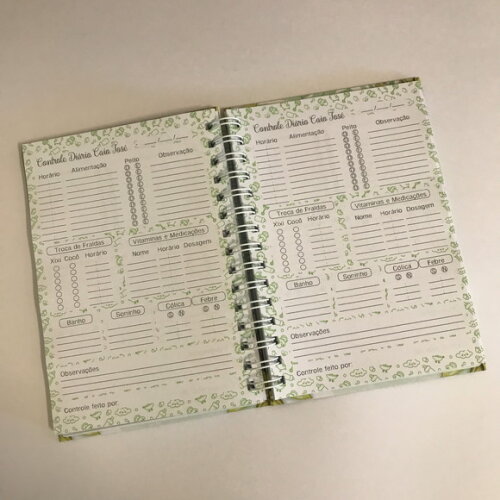 Controle Diário Caio José
Horário Alimentação Peito Observação
Troca de Fraldas
Xixi Cocô Horário
Vitaminas e Medicações
Nome Horário Dosagem
Banho Soninho Cólica Febre
S N S N
Observações
Controle feito por:
Controle Diário Caio José
Horário Alimentação Peito Observação
Troca de Fraldas
Xixi Cocô Horário
Vitaminas e Medicações
Nome Horário Dosagem
Banho Soninho Cólica Febre
S N S N
Observações
Controle feito por: